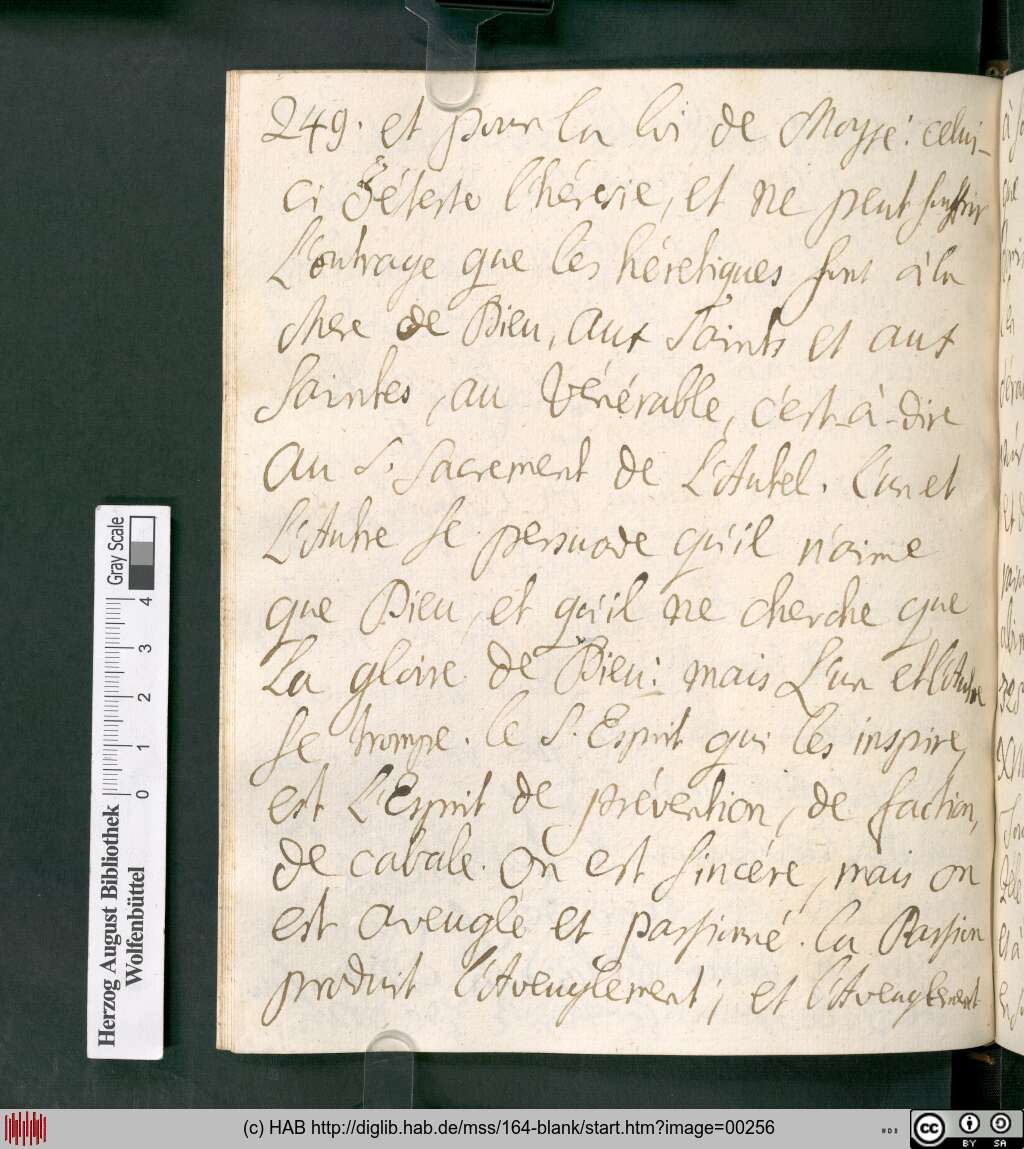 249. et pour la loi de Moyse: celui-
ci déteste l'hérésie, et ne peut souffrir
L'outrage que les hérétiques font à la
mere de Dieu, aux Saints et aux
Saintes, au Vénérable, c'est-à-dire
au S. Sacrement de L'Autel. l'un et
L'Autre se persuade qu'il n'aime
que Dieu, et qu'il ne cherche que
La gloire de Dieu: mais L'un et l'Autre
se trompe. le S. Esprit qui les inspire,
est L'Esprit de prévention, de faction,
de cabale. On est sincére, mais on
est aveuglé et passionné. la Passion
produit l'Aveuglement; et l'Aveuglement
Herzog August Bibliothek
Wolfenbüttel
0 1 2 3 4
Gray Scale
(c) HAB http://diglib.hab.de/mss/164-blank/start.htm?image=00256
cc BY SA